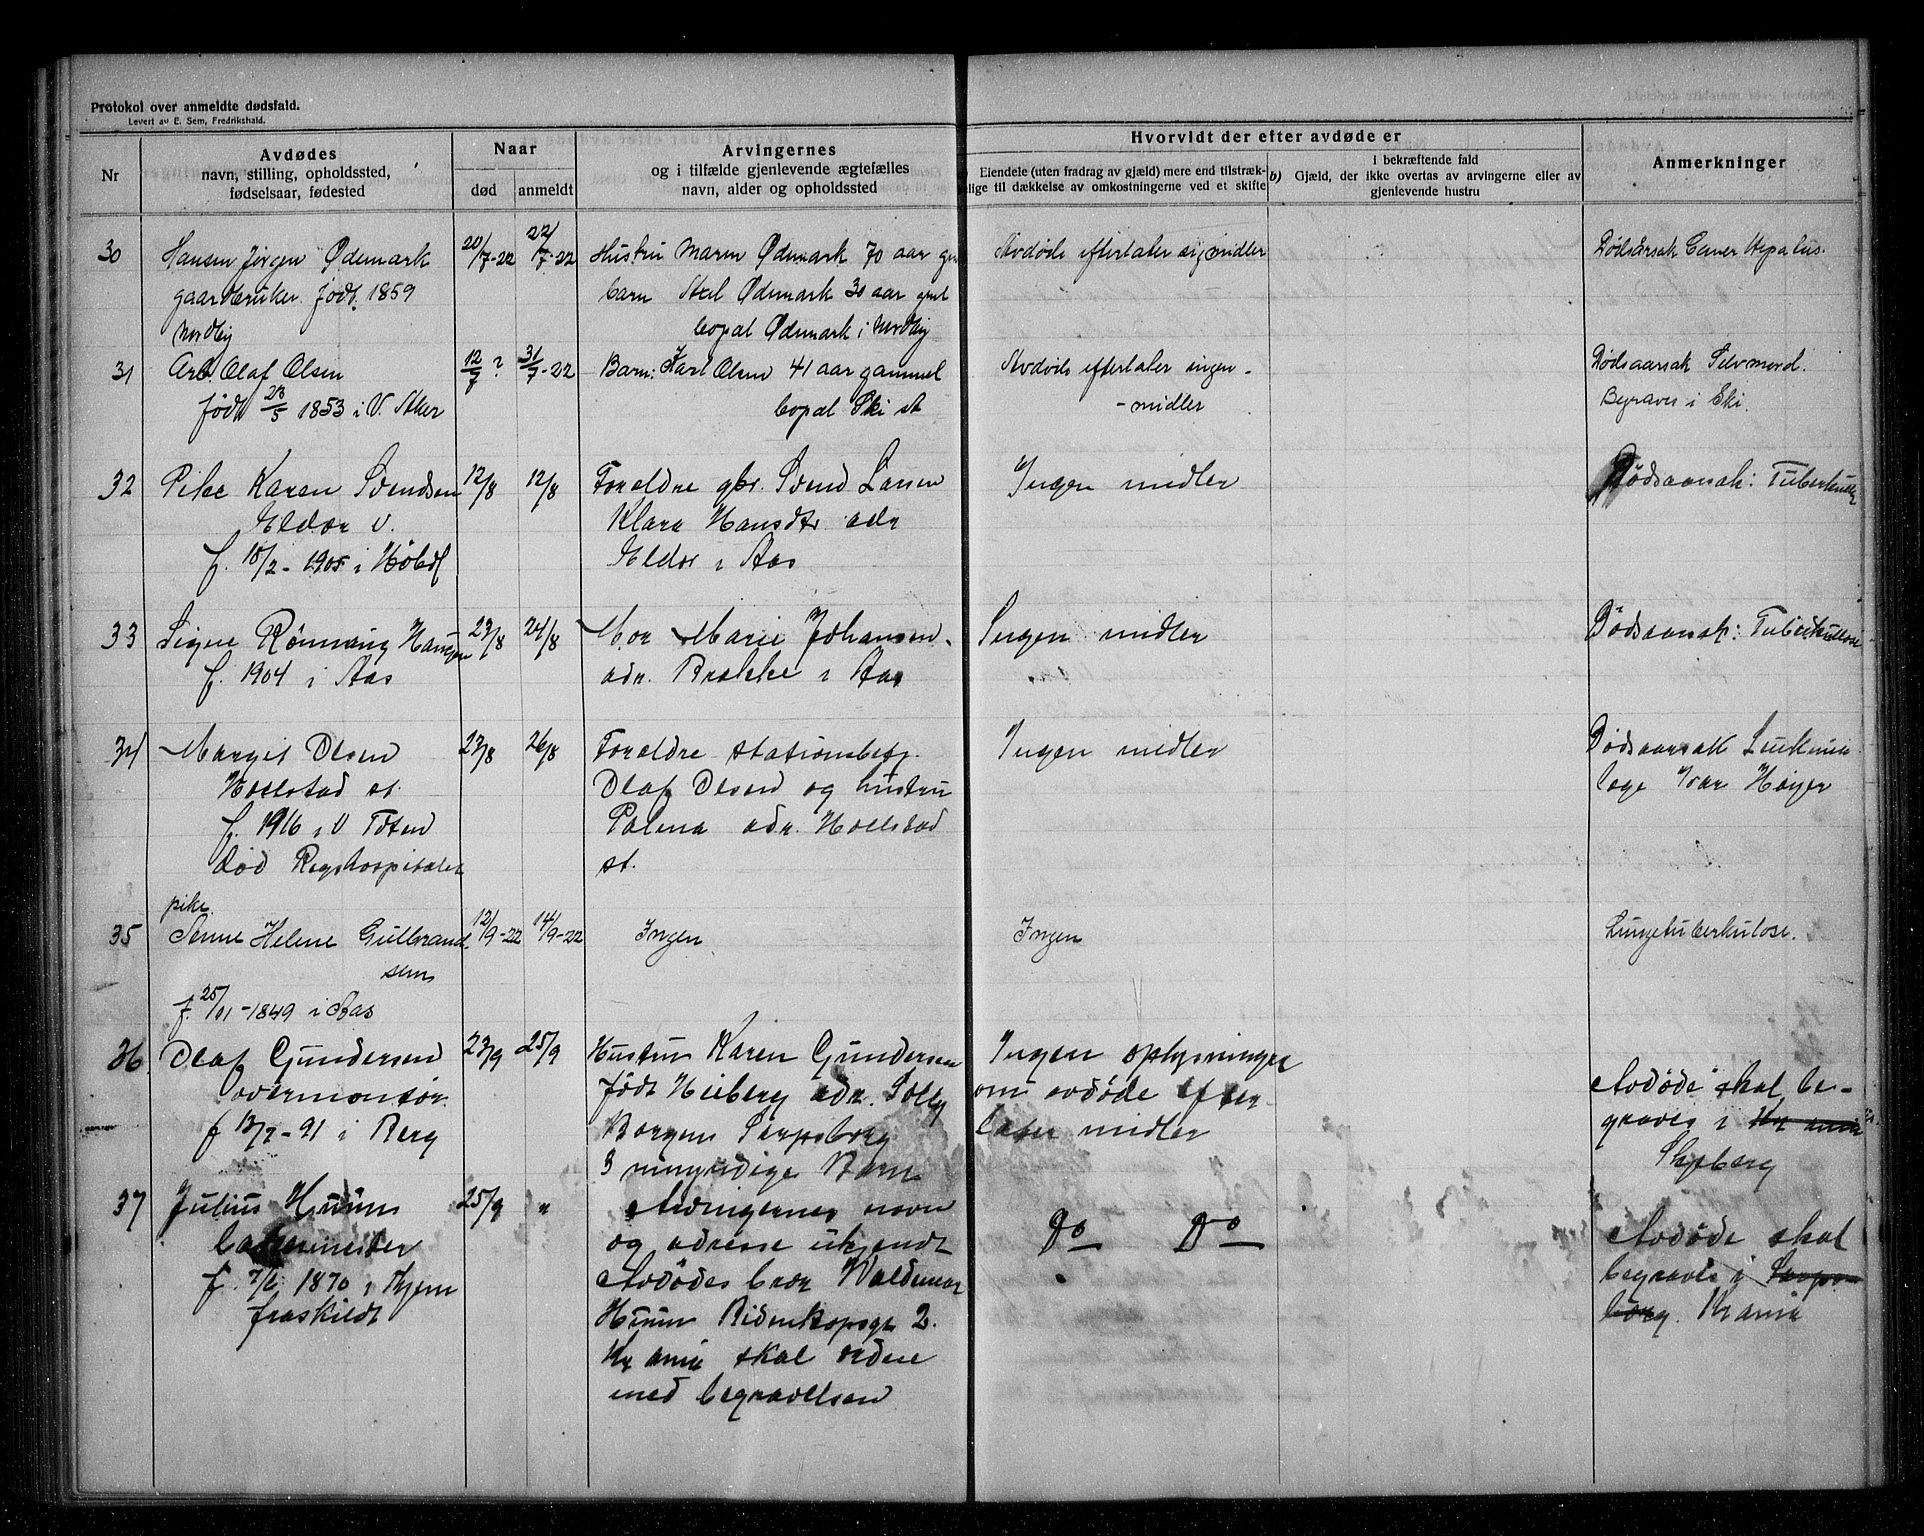 Protokol over anmeldte dødsfald.
Levert av E. Sem, Fredrikshald.
Nr
Avdødes
navn, stilling, opholdssted,
fødselsaar, fødested
Naar
død
anmeldt
Arvingernes
og i tilfælde gjenlevende ægtefælles
navn, alder og opholdssted
Hvorvidt der efter avdøde er
Eiendele (uten fradrag av gjæld) mere end tilstræk-
lige til dækkelse av omkostningerne ved et skifte
b)
I bekræftende fald
Gjæld, der ikke overtas av arvingerne eller av
gjenlevende hustru
Anmerkninger
30
Hansen Jørgen Ødemark
gaardbruker. født 1859
Nordby
20/7-22
22/7-22
Hustru Maren Ødemark 70 aar
barn Axel Ødemark 30 aar
bopæl Ødemark i Nordby
Avdøde efterlater midler
Dødsårsak
31
Arb. Olaf Olsen
født 28/5 1853 i V. Aker
12/7 ?
31/7-22
Barn: Karl Olsen 41 aar gammel
bopæl Ski st
Avdøde efterlater ingen-
-midler
Dødsaarsak Selvmord.
Begraves i Ski.
32
Pike Karen Svendsen
Eldor v.
f. 10/2-1905 i Hobøl
12/8
12/8
Foreldre gbr. Svend Larsen
Klara Hansdtr adr
Eldor i Aas
Ingen midler
Dødsaarsak: Tuberkulose
33
Signe Rønnaug Haugen
f. 1904 i Aas
23/8
24/8
Mor Marie Johansen
adr. Brekke i Aas
Ingen midler
Dødsaarsak: Tuberkulose
34
Margit Olsen
Holstad st.
f. 1916 i V Toten
død Rigshospitalet
23/8
26/8
Foreldre stationsbetj.
Olaf Olsen og hustru
Palma adr. Holstad
st.
Ingen midler
Dødsaarsak Leukemi
læge Ivar Høyer
35
pike
Anne Helene Gulbrand
sen
f. 25/11-1849 i Aas
12/9-22
14/9-22
Ingen
Ingen
Lungetuberkulose.
36
Olaf Gundersen
overmontør
f 13/7-91 i Berg
23/9
25/9
Hustru Karen Gundersen
født Heiberg adr. Solly
Borgen Sarpsborg
3 mindreårige Barn
Ingen oplysninger
om avdøde efter
later midler
Avdøde skal be-
graves i Kr ania
Skjeberg
37
Julius Huum
f. 7/6 1870 i Hjem
fraskildt
25/9
"
Arvingernes navn
og adresse ukjendt
Avdødes bror Waldemar
Huum 2.
Kr ania skal ordne
med begravelsen
Do Do
Avdøde skal
begraves i Sarps-
borg. Kr ania